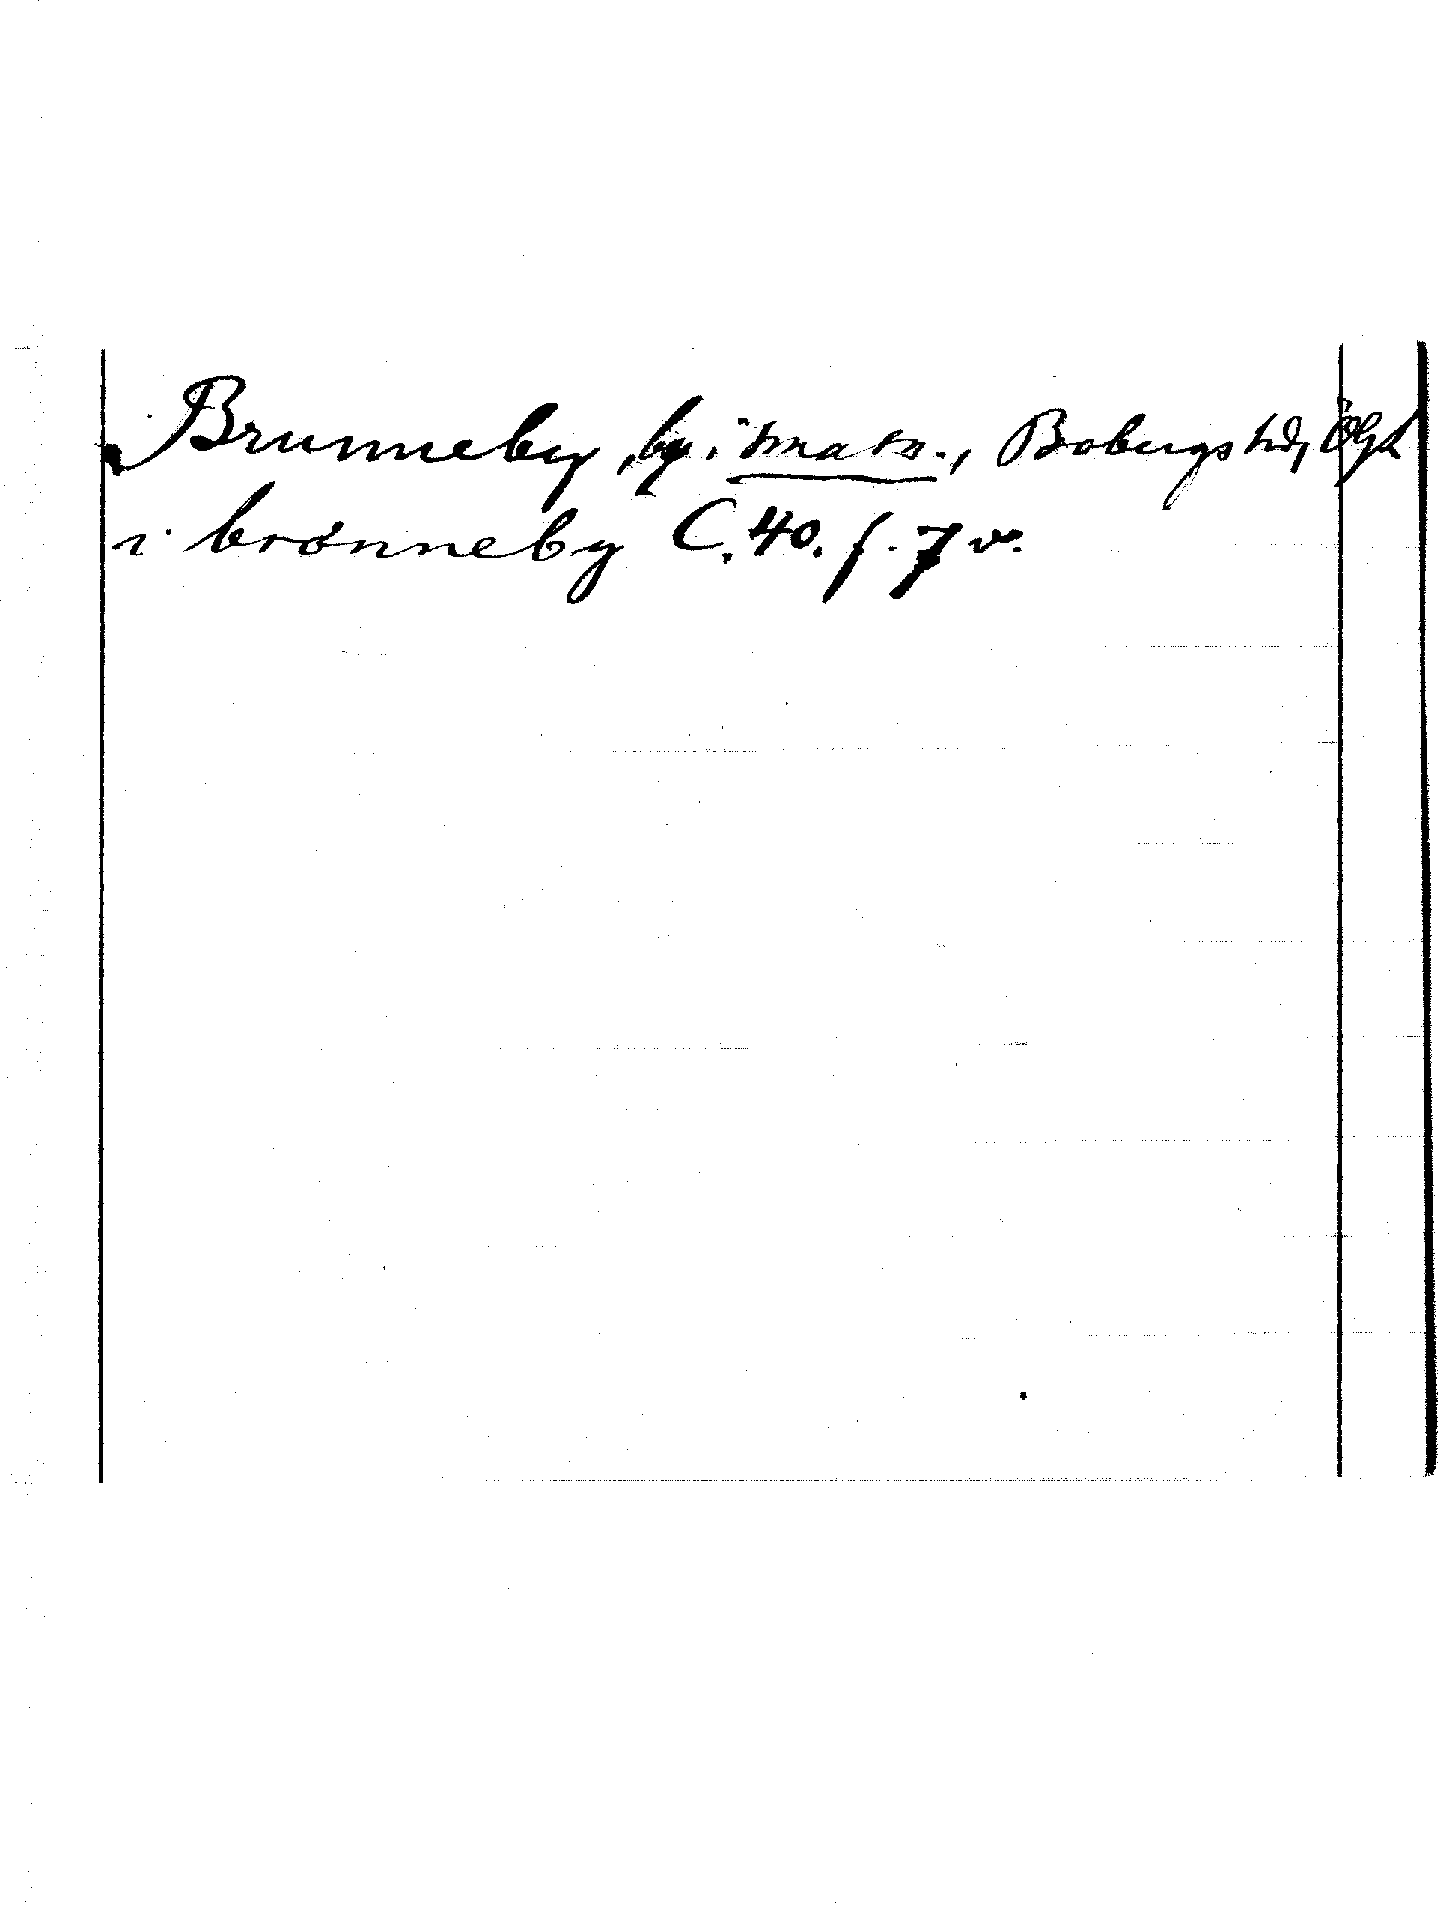 Brunneby, by i smasn., Bobergs hd, Ögtl
i brønneby C. 40. f. 7 v.